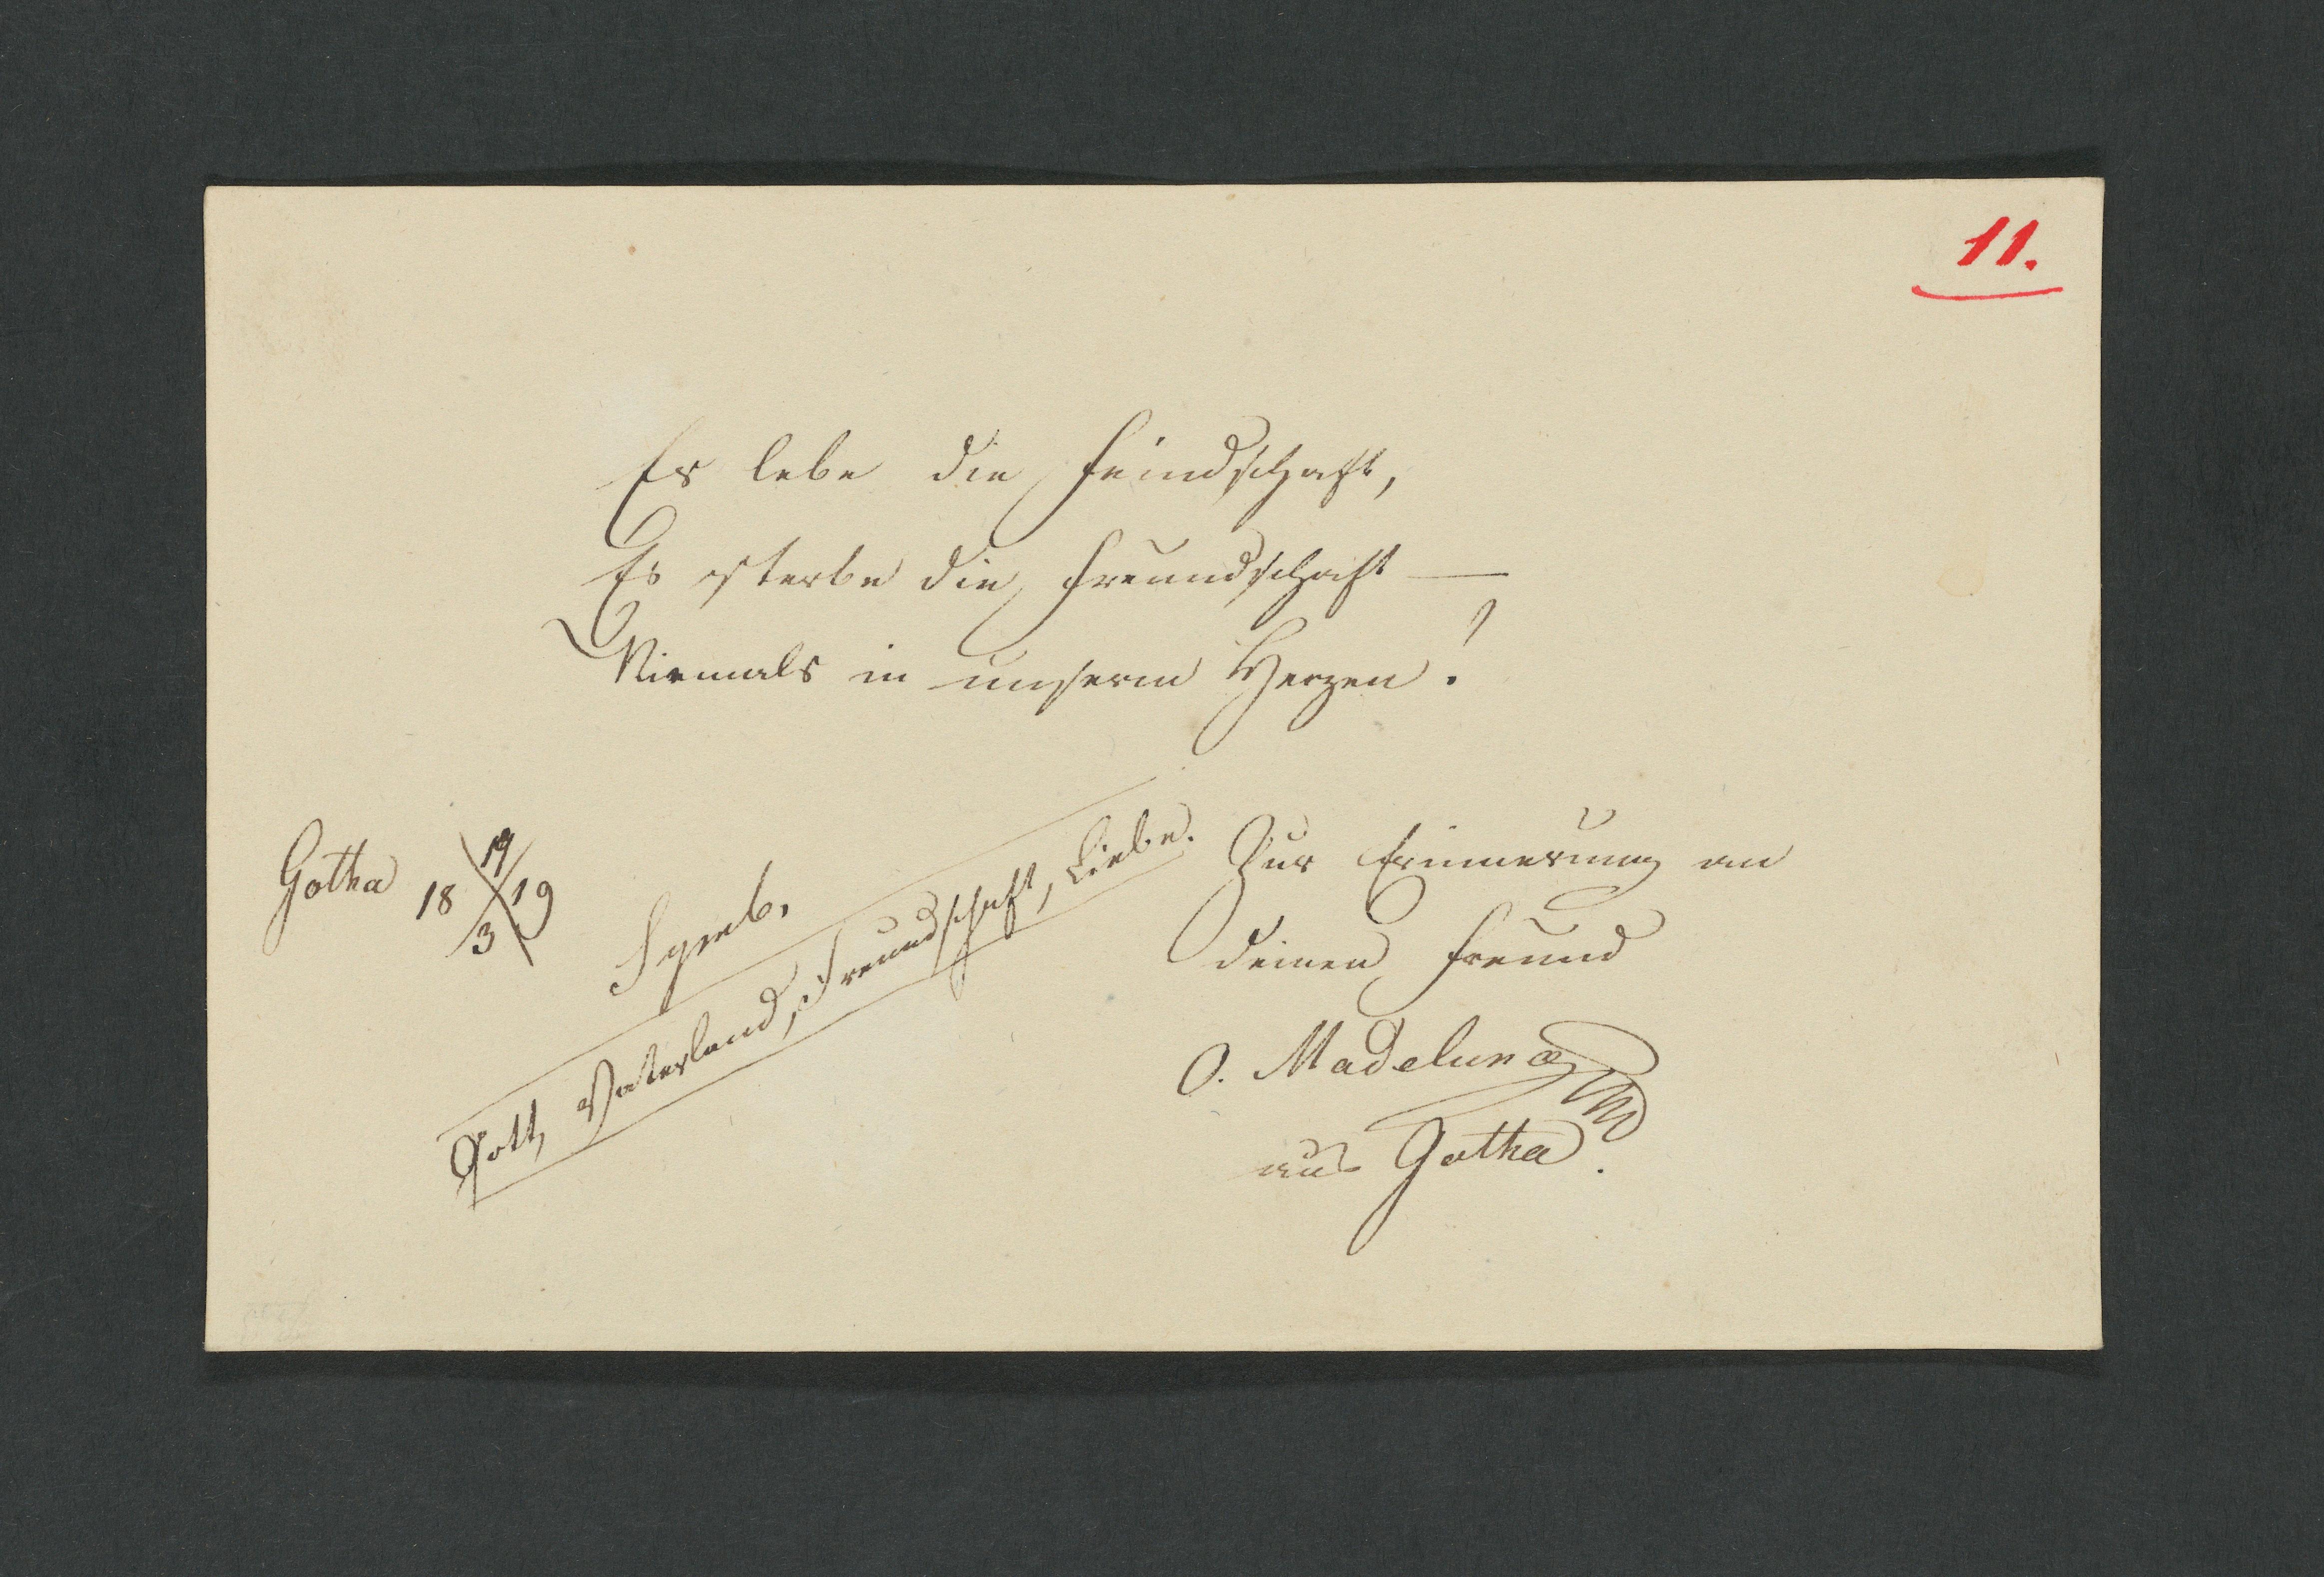 11.
Es lebe die Feindschaft,
Es sterbe die Freundschaft —
Niemals in unserm Herzen!
Gotha 18 19/3 19
Symb.
Gott, Vaterland, Freundschaft, Liebe.
Zur Erinnerung an
deinen Freund
O. Madelung
aus Gotha.